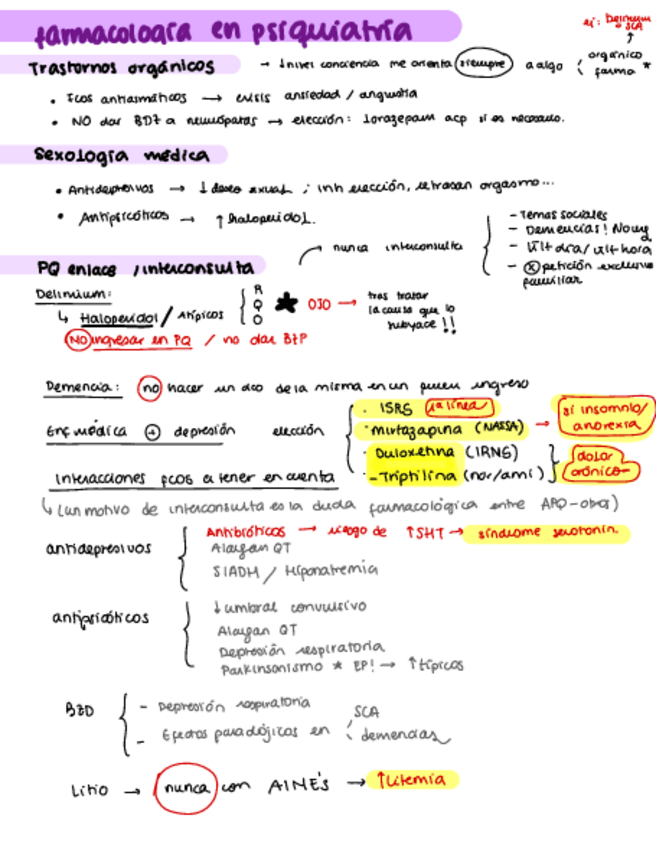 farmacología en psiquiatría
ej: Delirium
o SCA
Trastornos orgánicos → ↓nivel conciencia me orienta siempre a algo
orgánico
farma *
• Fcos antiasmáticos → crisis ansiedad / angustia
• NO dar BDZ a neumópatas → elección: lorazepam acp si es necesario.
Sexología médica
• Antidepresivos → ↓ deseo sexual ; inh erección, retrasan orgasmo...
• Antipsicóticos → ↑ haloperidol.
PQ enlace / interconsulta
nunca interconsulta
- Temas sociales
- Demencias! No urg
- últ día / últ hora
- X petición exclusiva
familiar
Delirium:
↳ Haloperidol / Atípicos
R
Q
O
★ OJO → tras tratar
la causa que lo
subyace !!
NO ingresar en PQ / no dar BZP
Demencia: no hacer un dco de la misma en un primer ingreso
Enf. médica + depresión elección
· ISRS 1ª línea
· mirtazapina (NASSA) → si insomnio/
anorexia
· Duloxetina (IRNS)
- Triptilina (nor/ami)
dolor
crónico
Interacciones fcos a tener en cuenta
↳ (un motivo de interconsulta es la duda farmacológica entre APQ-otros)
antidepresivos
Antibióticos → riesgo de ↑5HT → síndrome serotonin.
Alargan QT
SIADH / Hiponatremia
antipsicóticos
↓ umbral convulsivo
Alargan QT
Depresión respiratoria
Parkinsonismo * EP! → ↑típicos
BZD
- Depresión respiratoria
- Efectos paradójicos en
SCA
demencias
Litio → nunca con AINE's → ↑Litemia